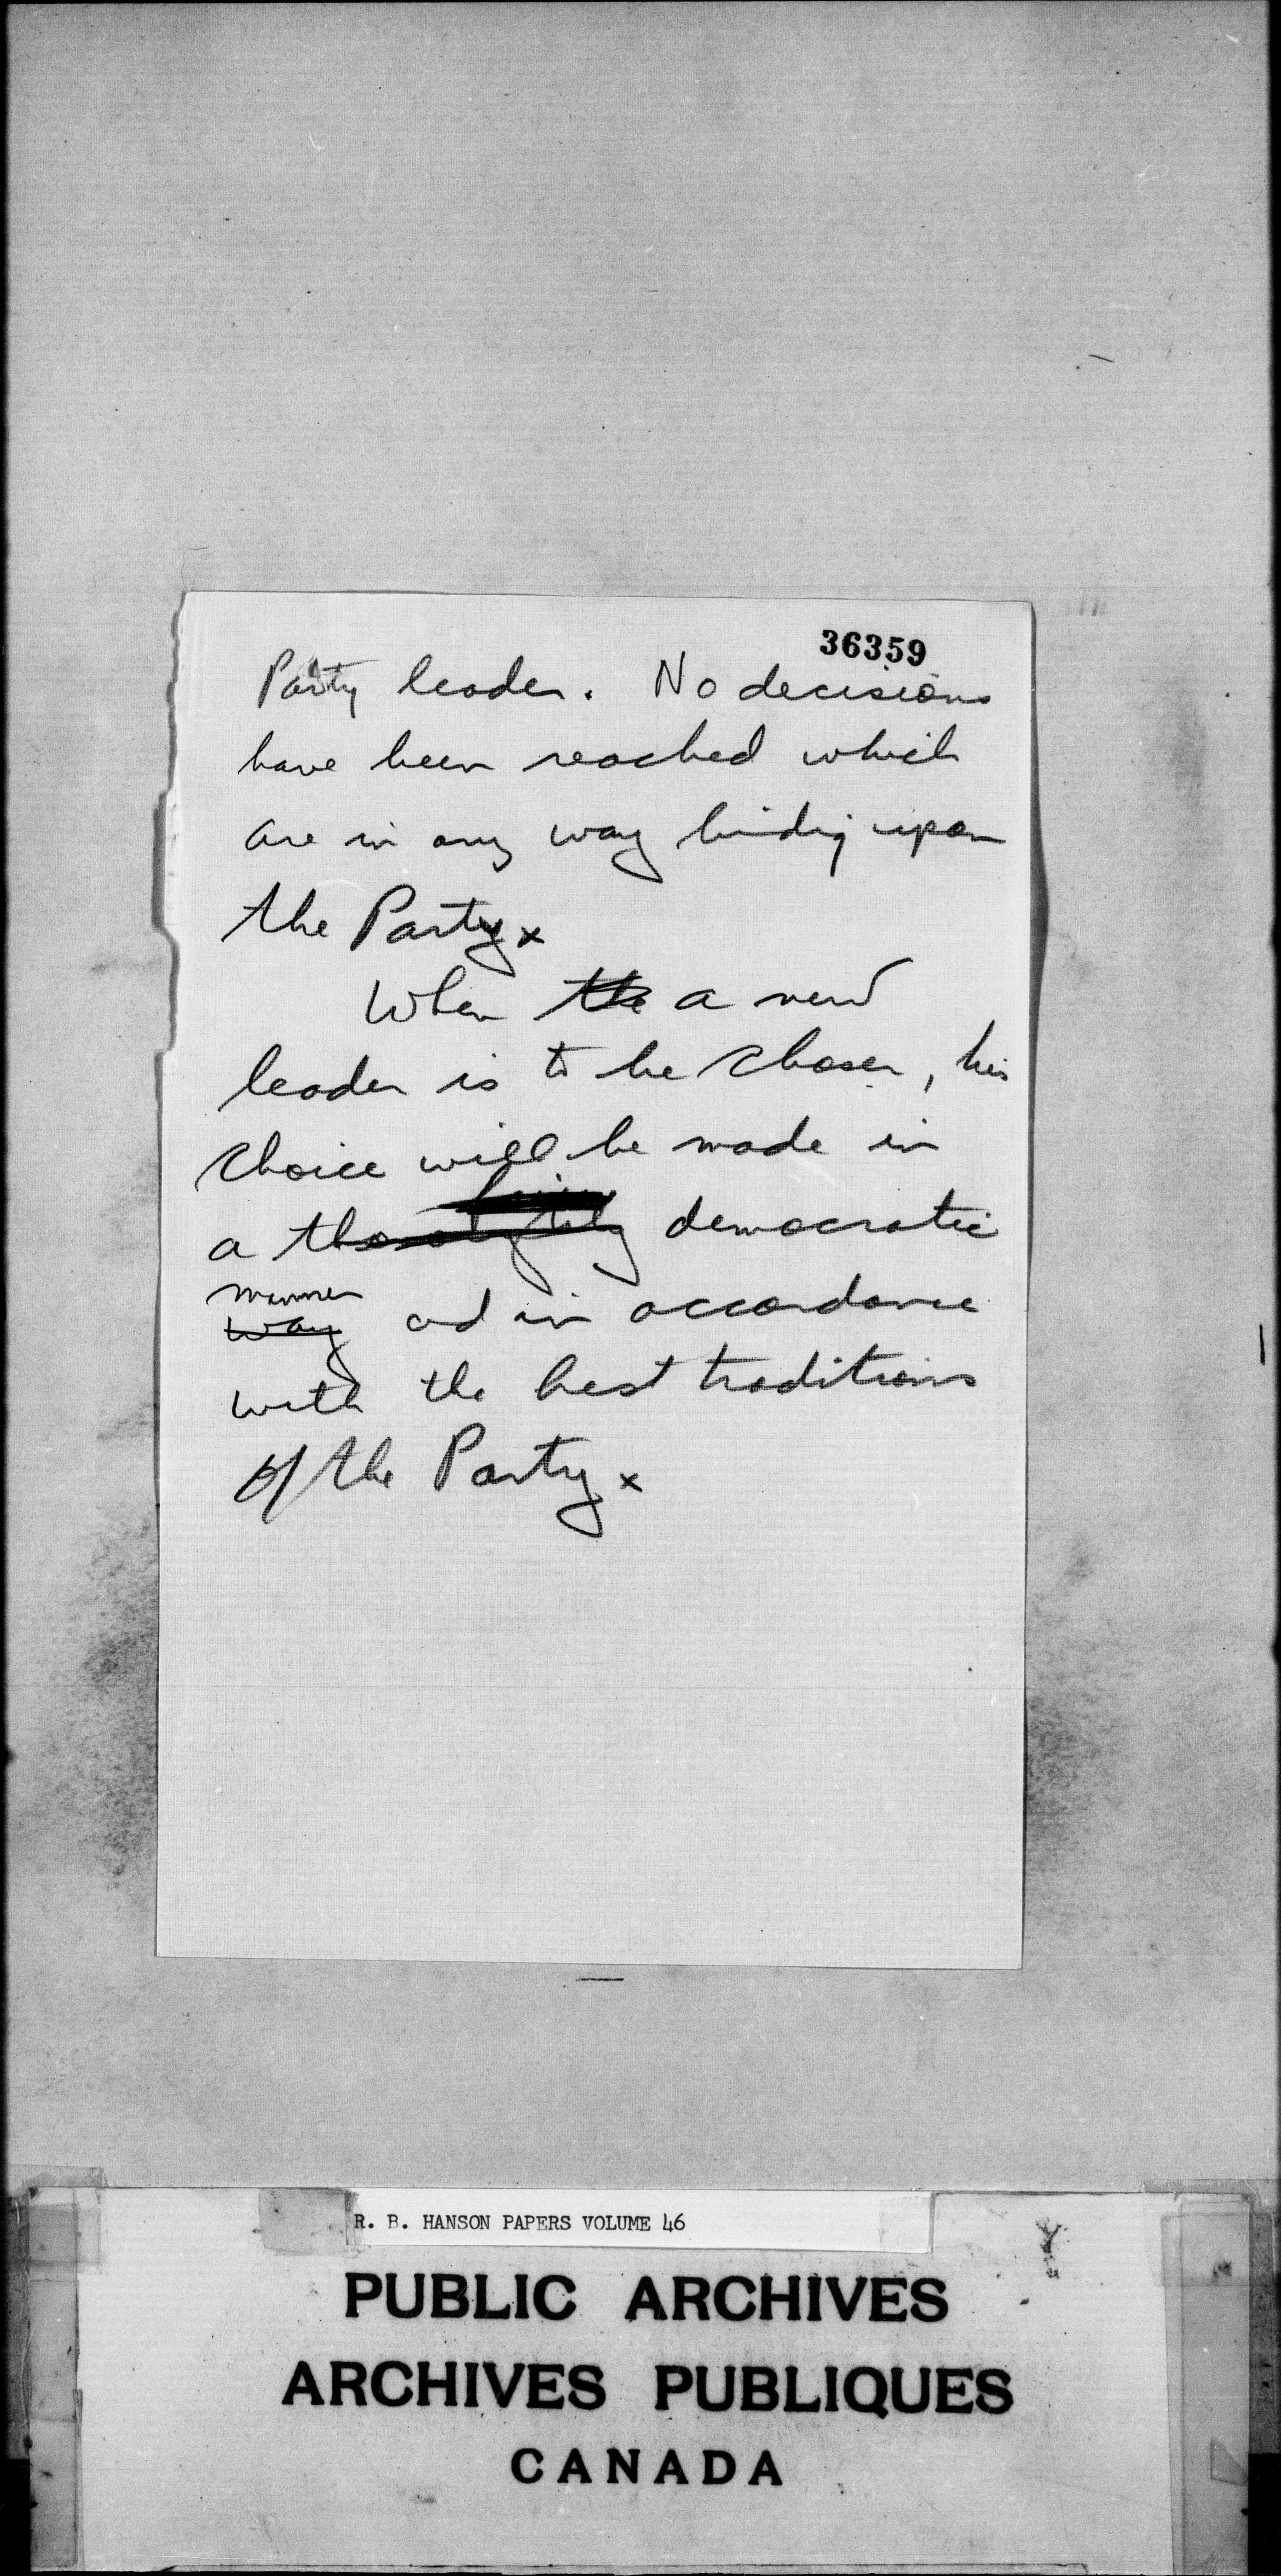 36359
Party leader. No decisions
have been reached which
are in any way binding upon
the Party x
When the a new
leader is to be chosen, his
choice will be made in
a thoroughly democratic
manner
way and in accordance
with the best traditions
of the Party x
R. B. HANSON PAPERS VOLUME 46
PUBLIC ARCHIVES
ARCHIVES PUBLIQUES
CANADA